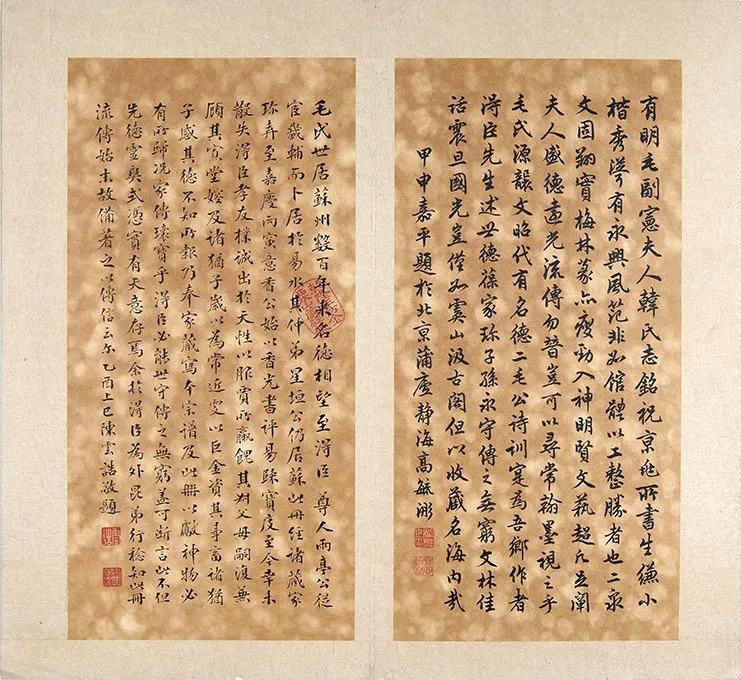 有明毛副憲夫人韓氏志銘祝京兆所書生縑小
楷秀澤有永興風范非如館體以工整勝者也二泉
文固翔實梅林篆亦瘦勁入神明賢文執超凡並闡
夫人盛德遺光流傳勿替豈可以尋常翰墨視之乎
毛氏源文昭代有名德二毛公詩訓寔為吾鄉作者
淂臣先生述世德葆家珎子孫永守傳之無窮文林佳
話震旦國光豈僅如虞山汲古閣但以收藏名海內哉
甲申嘉平題於北京蒲廬靜海高毓浵
毛氏世居蘇州數百年來名德相望至淂臣 尊人雨亭公從
宦畿輔而卜居於易水其仲弟星垣公仍居蘇此冊經諸藏家
珎弆至嘉慶丙寅意香公始以香光書評易歸寶度至今幸未
散失淂臣孝友樸誠出於天性以服賈所贏餽其父母嗣復
顧其堂嫂及諸猶子歲以為常近更以巨金資其事畜諸猶
子感其德不知所報乃奉家藏寫本宗譜及此冊以獻神物必
有所歸況家傳瓌寶乎淂臣必能世守傳之無窮蓋可斷言此不但
先德靈爽式憑實有天意存焉余於淂臣為外昆弟行稔知此冊
流傳始末故備著之以傳信云尓乙酉上巳陳雲誥敬題